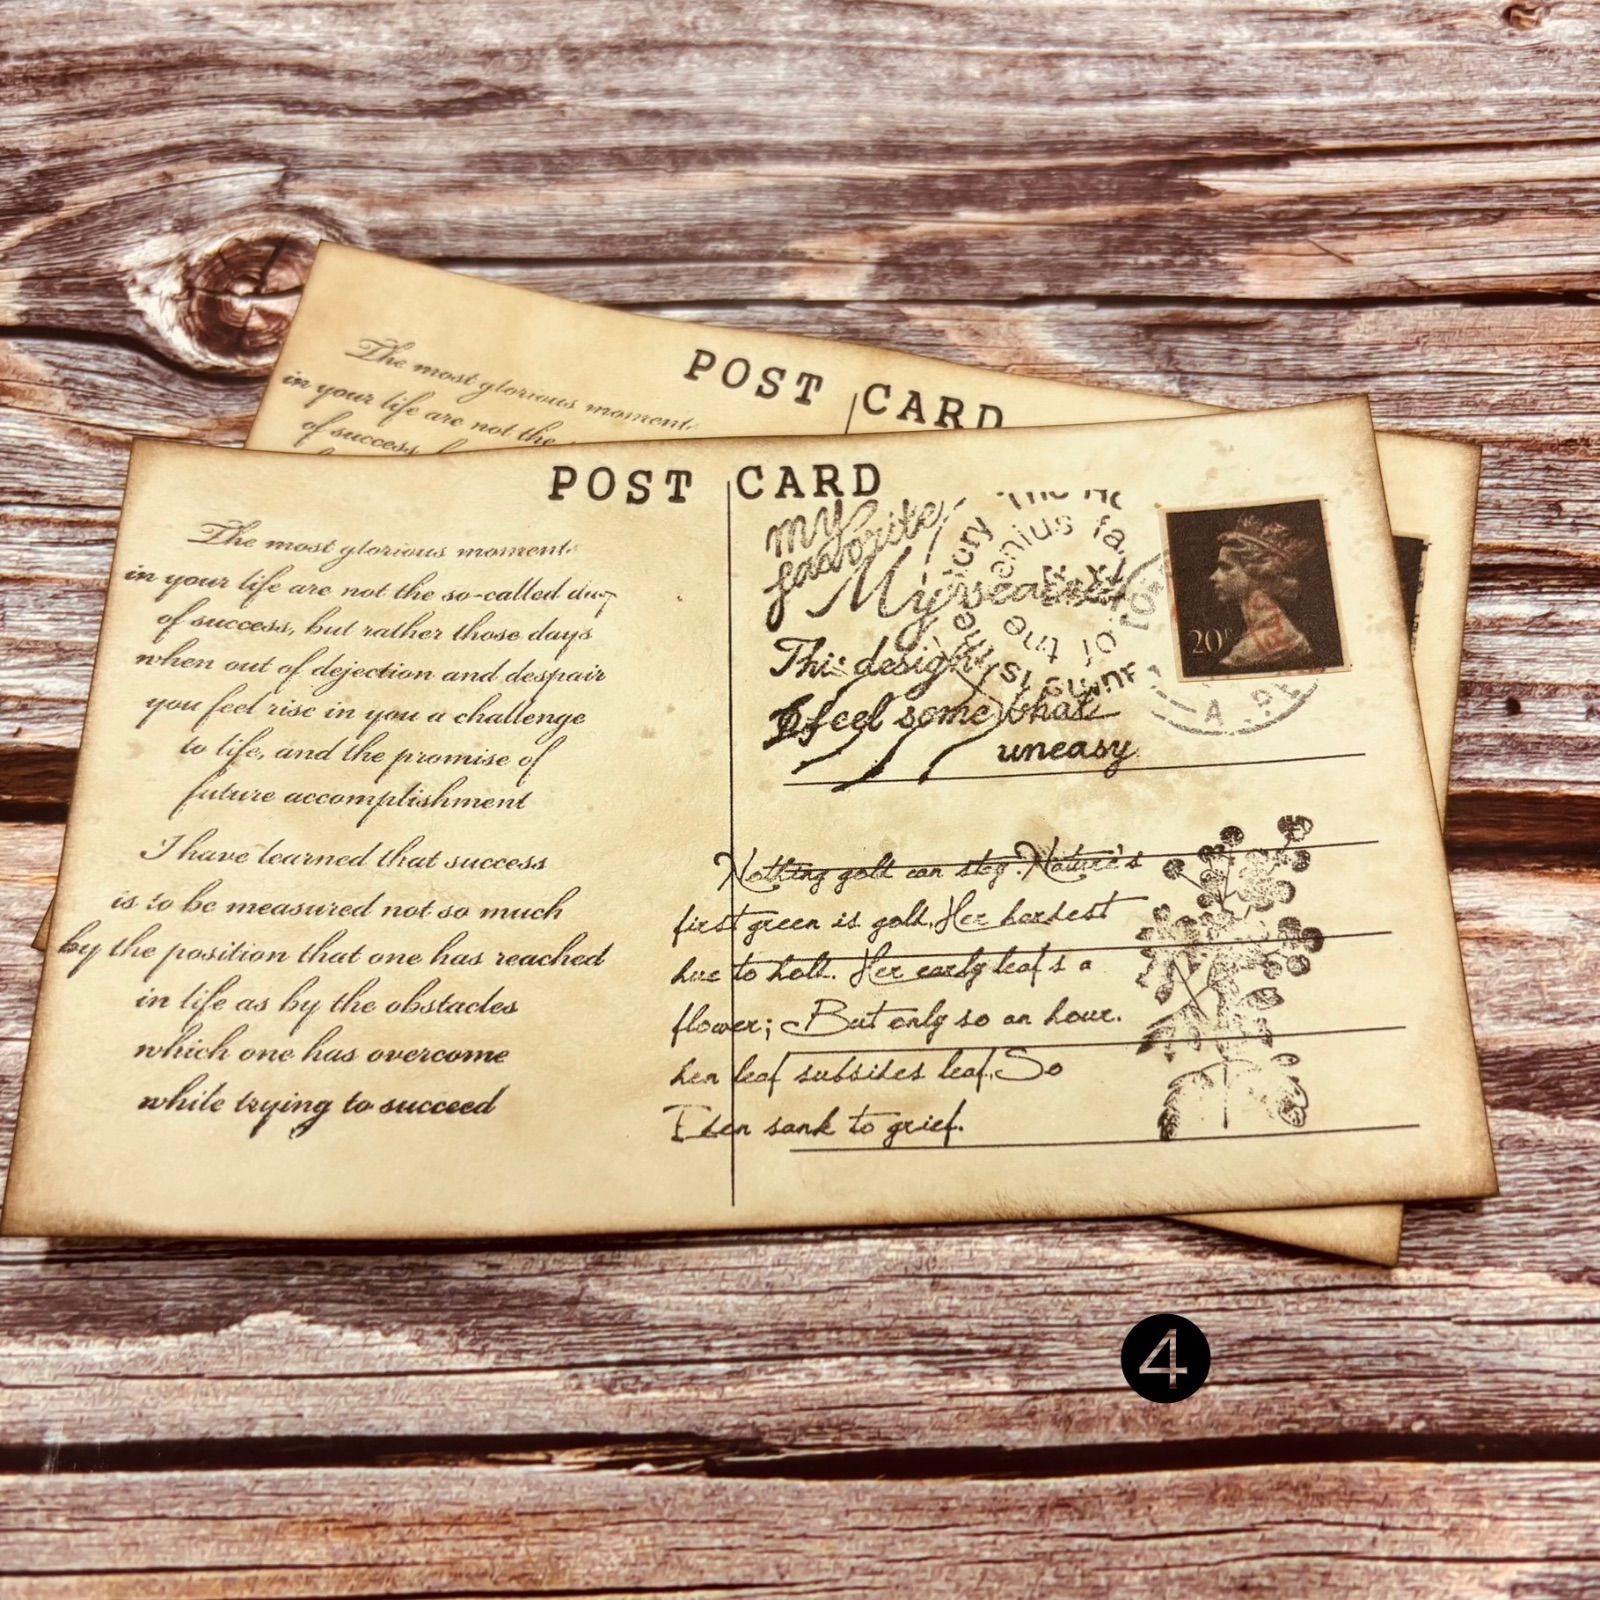 The most glorious moments
in your life are not the
of success,
POST CARD
POST CARD
The most glorious moments
in your life are not the so-called days
of success, but rather those days
when out of dejection and despair
you feel rise in you a challenge
to life, and the promise of
future accomplishment
I have learned that success
is to be measured not so much
by the position that one has reached
in life as by the obstacles
which one has overcome
while trying to succeed
my
favorite
My
This design
I feel some what
uneasy
enius fa
of the
20P
A
Nothing gold can stay. Nature's
first green is gold, Her hardest
hue to hold. Her early leaf s a
flower; But only so an hour.
hen leaf subsides leaf. So
sank to grief.
4